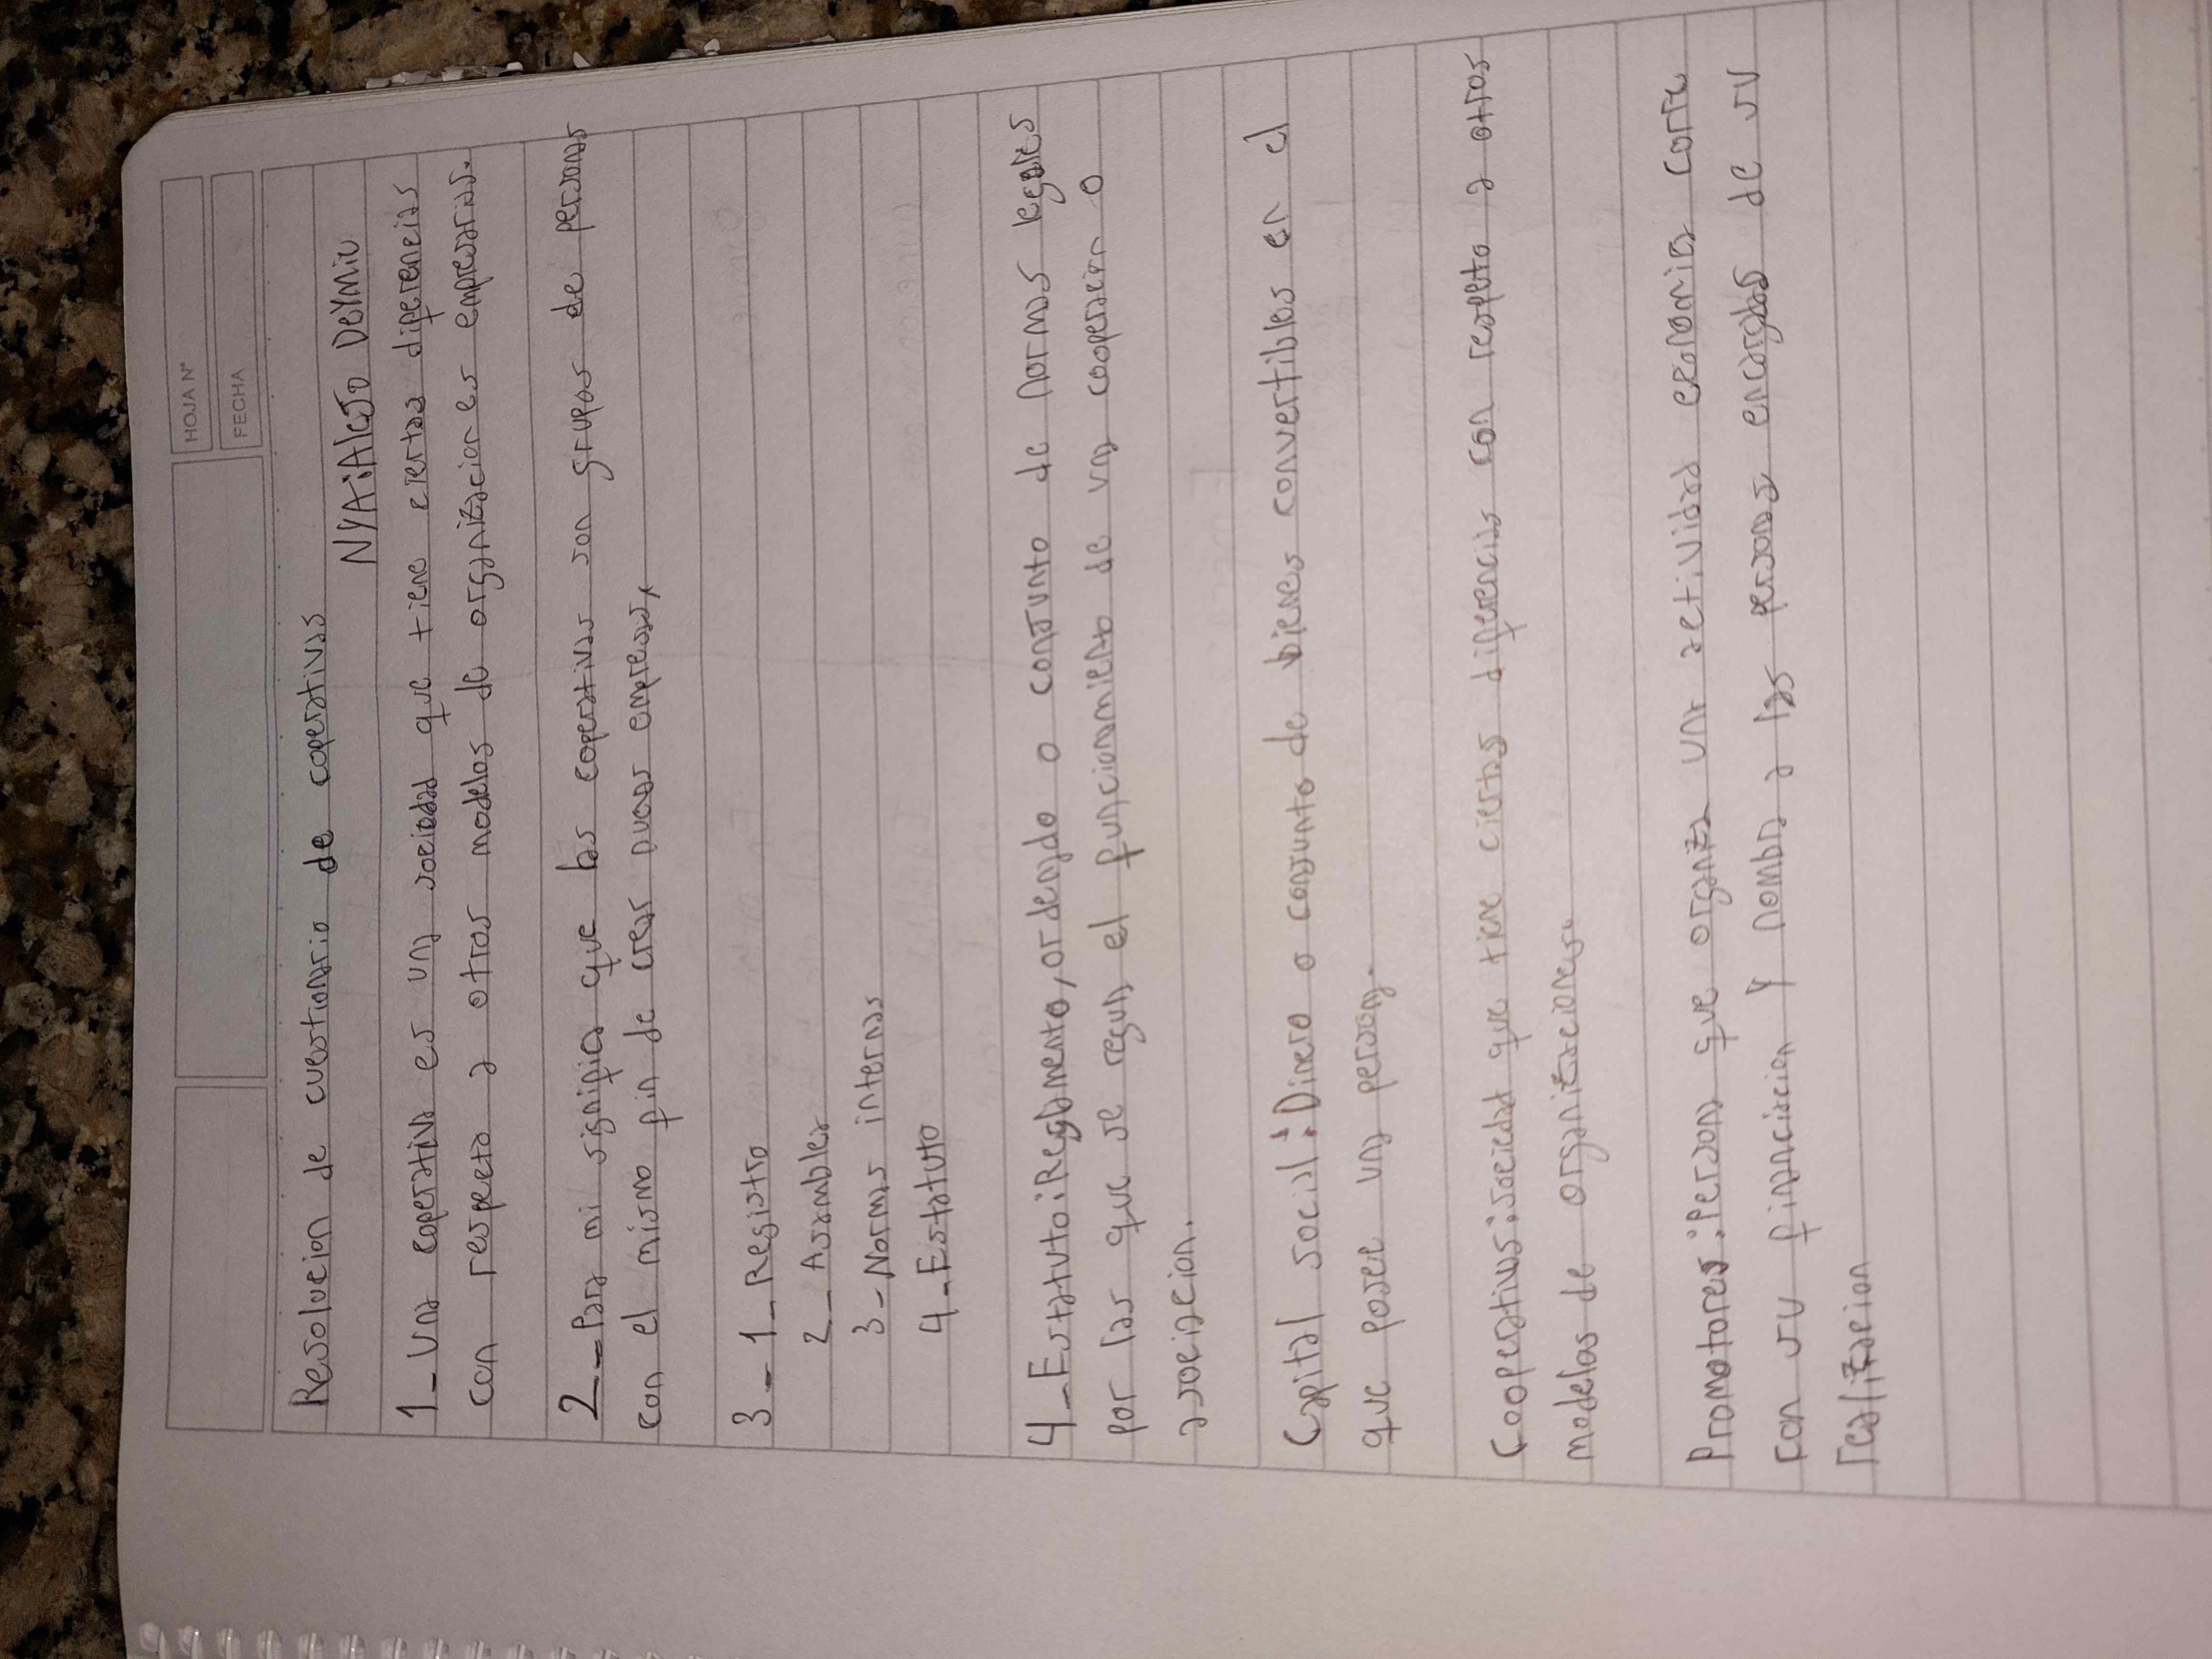 HOJA N°
FECHA
Resolucion de cuestionario de coperativas
NYA: Alejo Deymiu
1_ Una coperativa es una sociedad que tiene ciertas diferencias
con respecto a otros modelos de organizaciones empresarias.
2_ Para mi significa que las coperativas son grupos de personas
con el mismo fin de crear nuevas empresas,
3_ 1_ Registro
2_ Asamblea
3_ Normas internas
4_ Estatuto
4_ Estatuto: Reglamento, ordenado o conjunto de normas legales
por las que se regula el funcionamiento de una cooperacion o
asociacion.
Capital social: Dinero o conjunto de bienes convertibles en el
que posee una persona.
Cooperativas: sociedad que tiene ciertas diferencias con respeto a otros
modelos de organizaciones.
Promotores: Persona que organiza una actividad economica corre
con su financiacion y nombra a las personas encargadas de su
realizacion